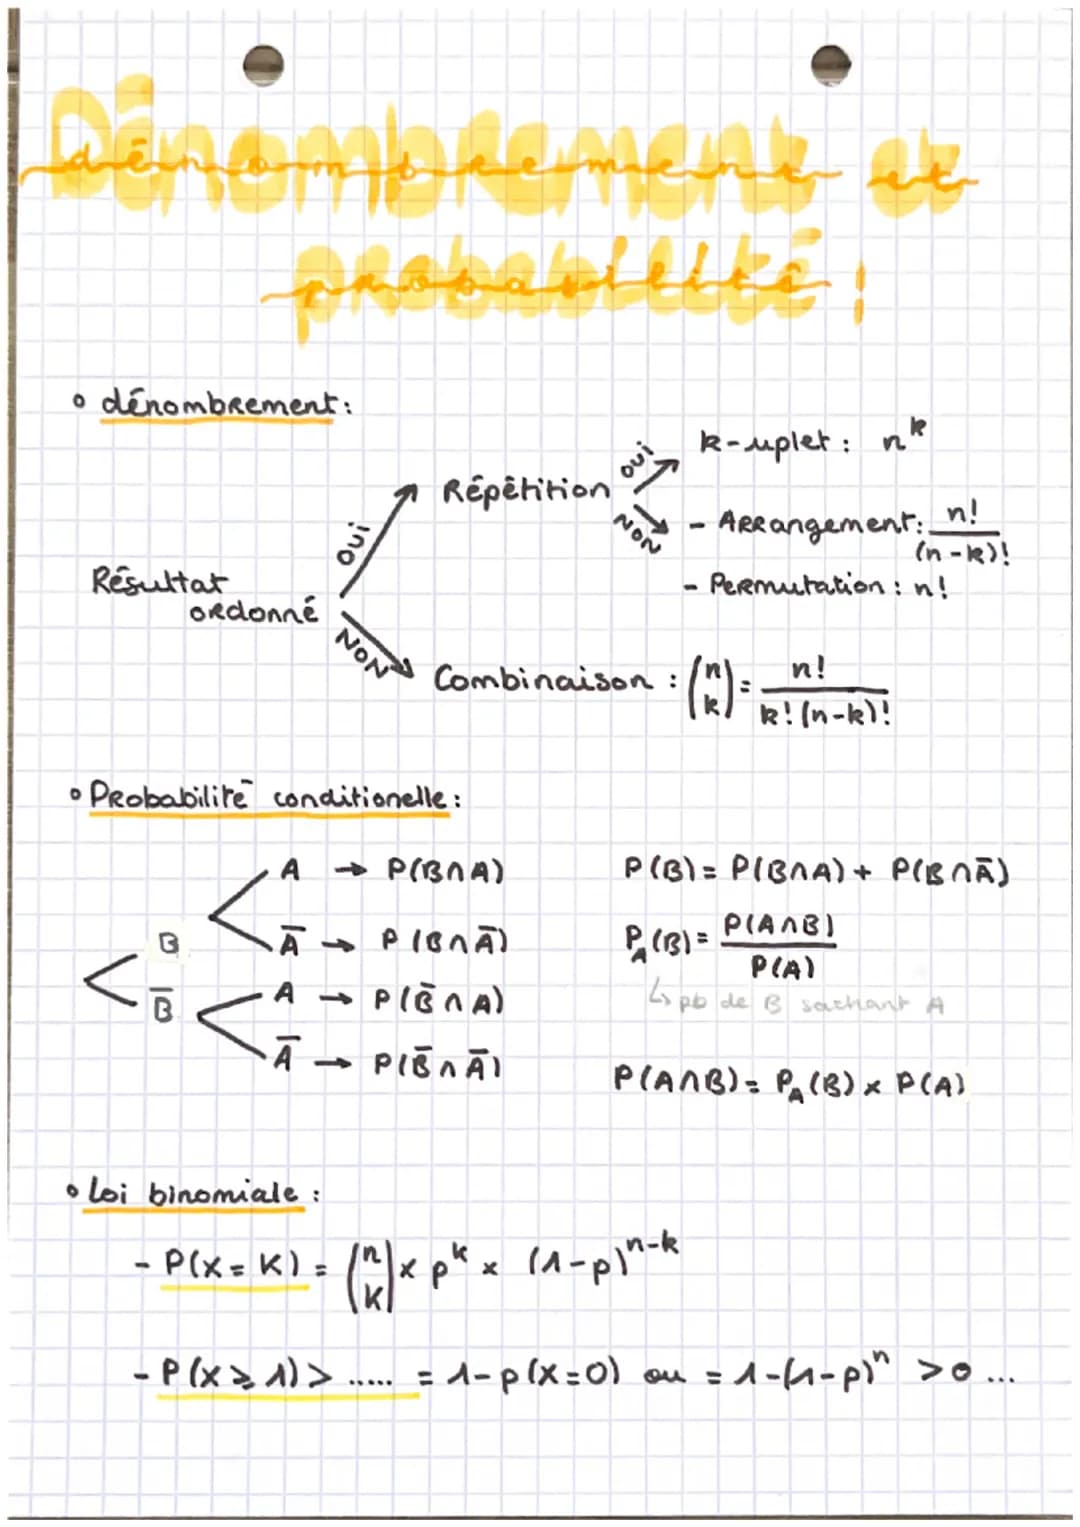 Dénombrement et
dénombrement et
probabilité !
probabilité
• dénombrement :
Résultat ordonné
OUI
Répêtition
OUI
k-uplet : n^k
NON
- Arrangement : n! / (n-k)!
- Permutation : n!
NON
Combinaison : (n k) = n! / k!(n-k)!
• Probabilité conditionelle :
B
A → P(B∩A)
Ā → P(B∩Ā)
B̄
A → P(B̄∩A)
Ā → P(B̄∩Ā)
P(B) = P(B∩A) + P(B∩Ā)
P_A(B) = P(A∩B) / P(A)
↳ pb de B sachant A
P(A∩B) = P_A(B) × P(A)
• Loi binomiale :
- P(X = K) = (n K) × p^k × (1-p)^n-k
- P(X ⩾ 1) > ..... = 1-p(X=0) ou = 1-(1-p)^n > 0 ...